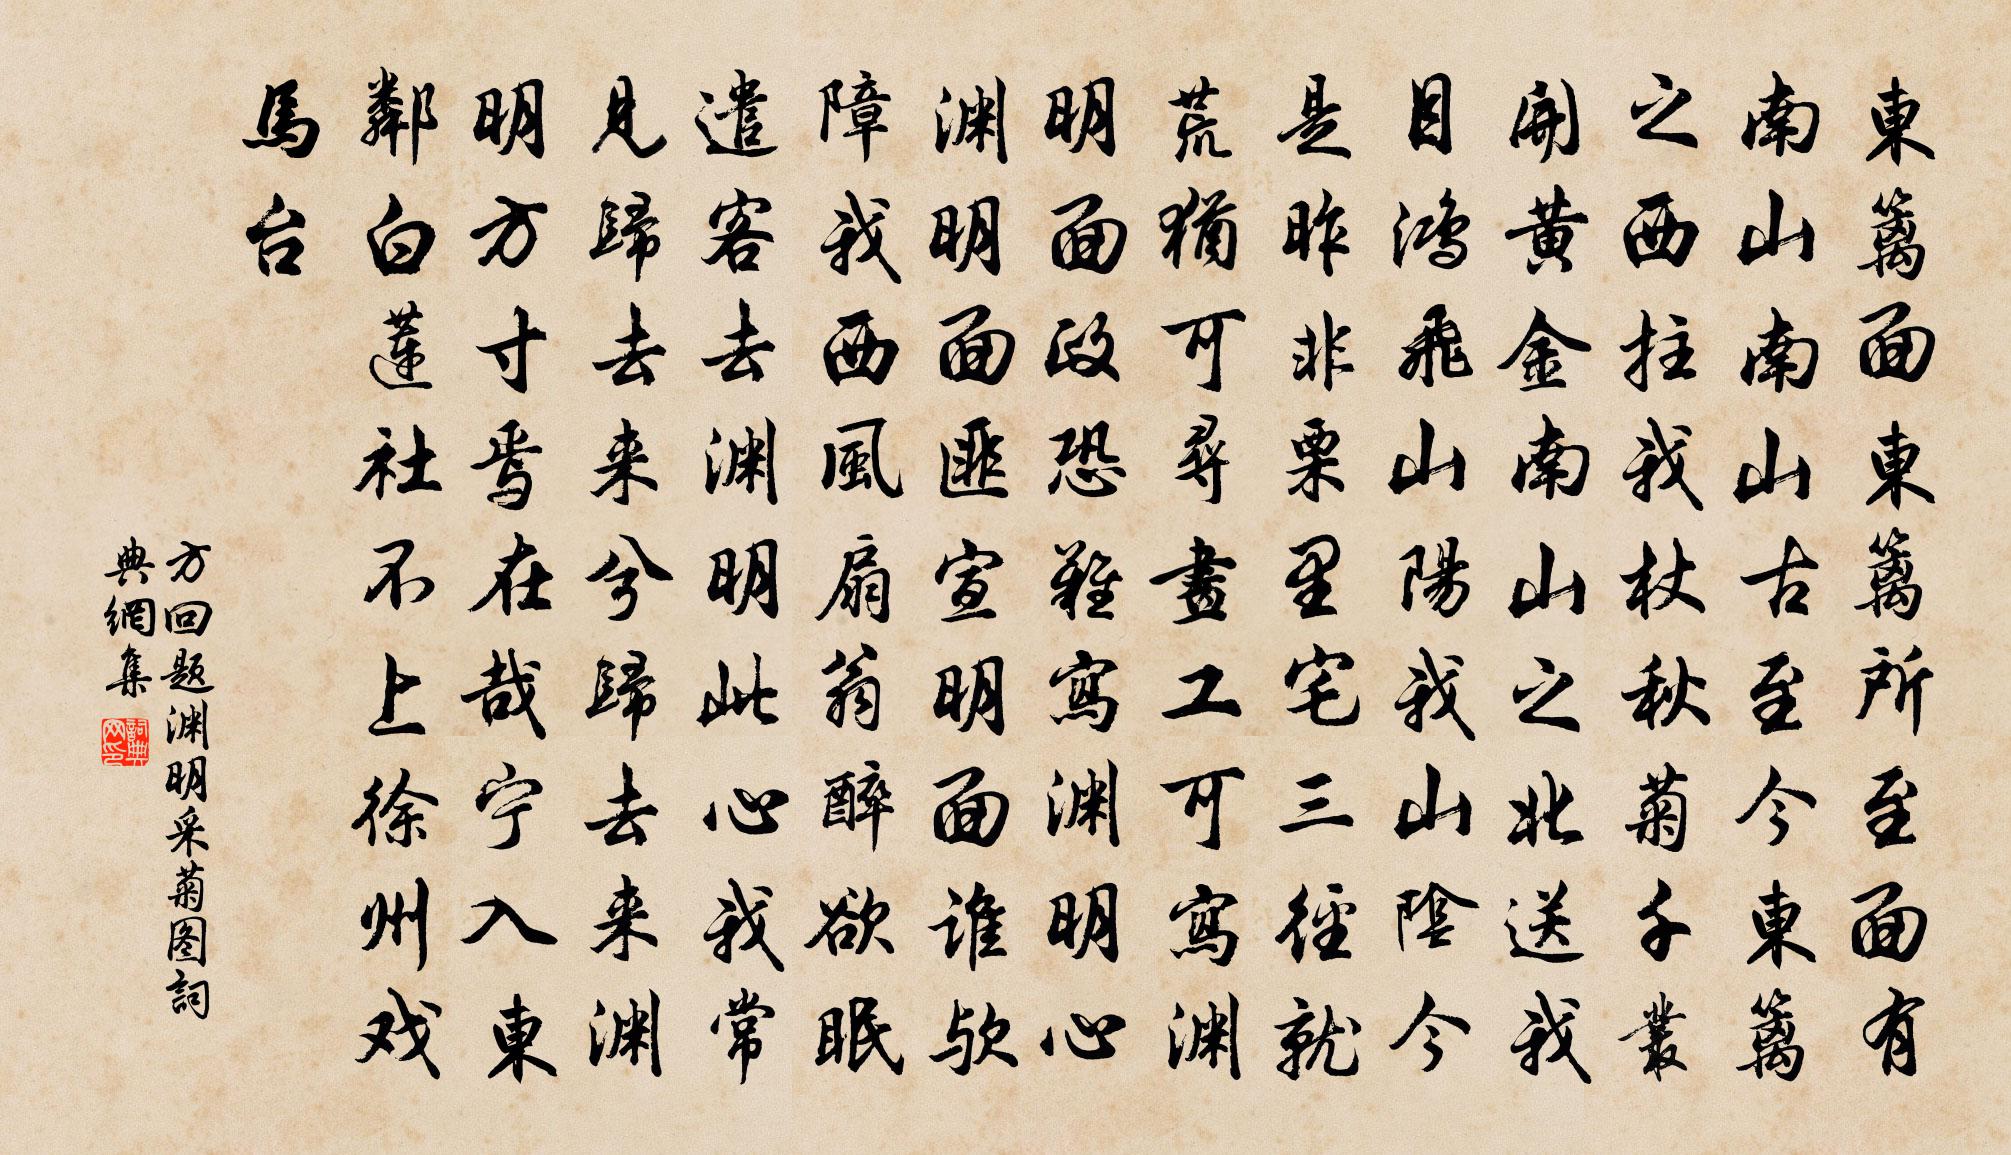 東籬面東籬所至面有
南山南山古至今東籬
之西拄我杖秋菊千叢
開黃金南山之北送我
目鴻飛山陽我山陰今
是昨非栗里宅三徑就
荒猶可尋畫工可寫淵
明面政恐難寫淵明心
淵明面匪宣明面誰歟
障我西風扇翁醉欲眠
遣客去淵明此心我常
見歸去来兮歸去来淵
明方寸焉在哉宁入東
鄰白蓮社不上徐州戏
馬台
方回题淵明采菊图詞
典網集
詞典
网印